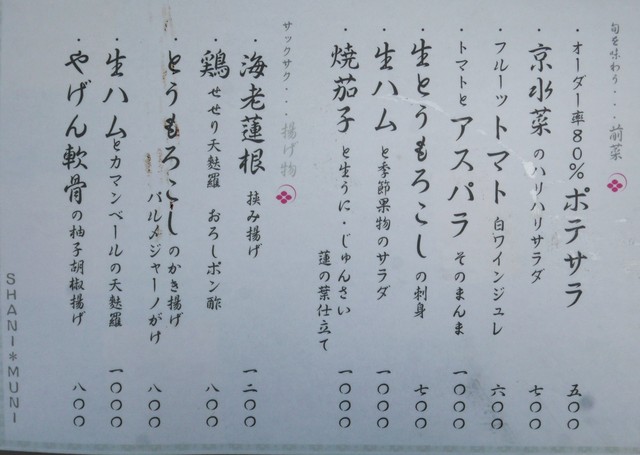 旬を味わう・・・前菜
・オーダー率80%ポテサラ 五〇〇
・京水菜のハリハリサラダ 七〇〇
・フルーツトマト 白ワインジュレ 六〇〇
・トマトとアスパラ そのまんま 一〇〇〇
・生とうもろこしの刺身 七〇〇
・生ハムと季節果物のサラダ 一〇〇〇
・焼茄子と生うに・じゅんさい
蓮の葉仕立て 一〇〇〇
サックサク・・・揚げ物
・海老蓮根 挟み揚げ 一二〇〇
・鶏せせり天麩羅 おろしポン酢 八〇〇
・とうもろこしのかき揚げ
パルメジャーノがけ 八〇〇
・生ハムとカマンベールの天麩羅 一〇〇〇
・やげん軟骨の柚子胡椒揚げ 八〇〇
SHANI*MUNI